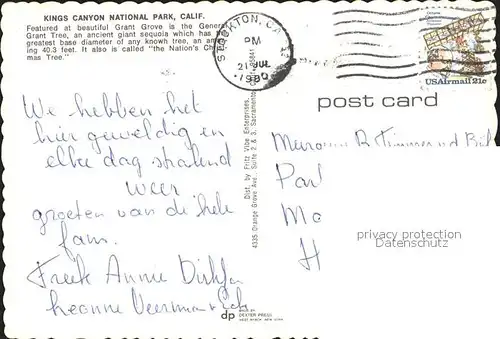 KINGS CANYON NATIONAL PARK, CALIF.
Featured at beautiful Grant Grove is the General
Grant Tree, an ancient giant sequoia which has
greatest base diameter of any known tree, an
ing 40.3 feet. It also is called "the Nation's
mas Tree."
STOCKTON, CA
PM
21 JUL
1980
USAirmail 21c
post card
We hebben het
hier geweldig en
elke dag stralend
weer
groeten van de hele
fam.
Freek Annie
Leonne Veerman
Dist. by Fritz Vibe Enterprises,
4335 Orange Grove Ave., Suite 2 & 3, Sacramento
privacy protection
Datenschutz
dp
MADE BY
DEXTER PRESS
WEST NYACK, NEW YORK